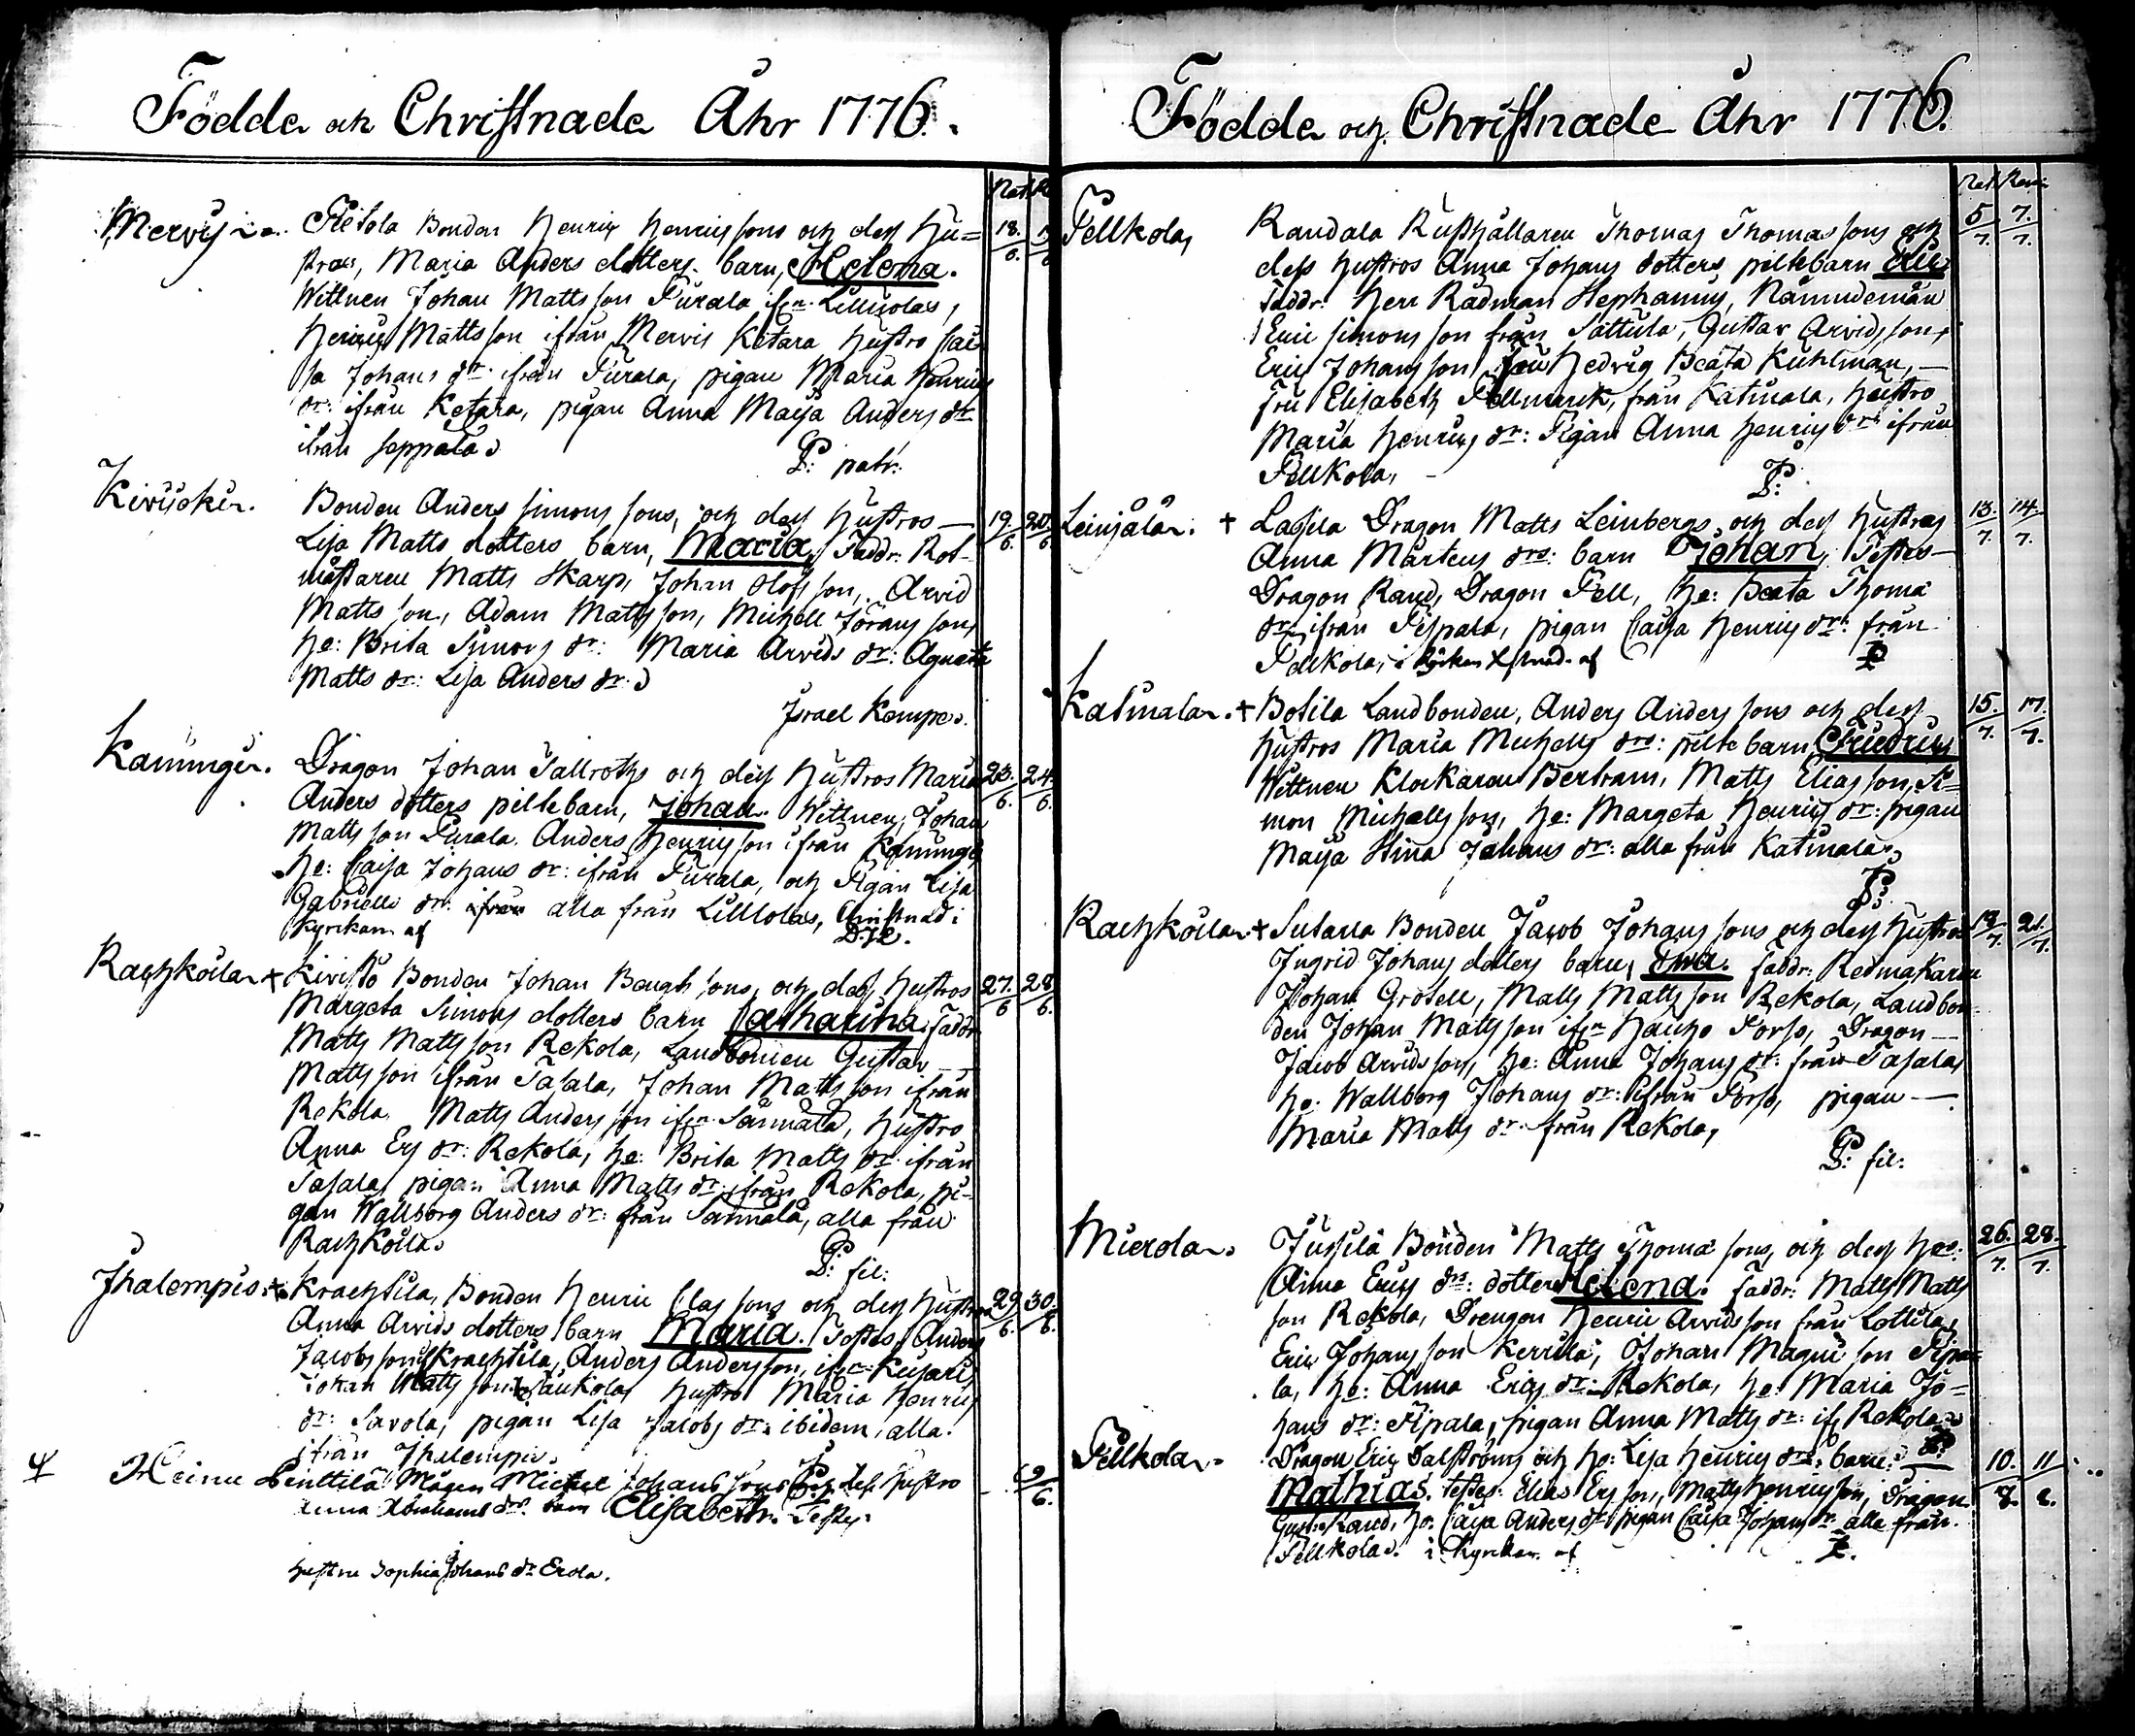 Födde och Christnade Åhr 1776.
Nat. R
Mervis. Kietola Bonden Henrix Henrics sons och dess Hu= 18./6.
stros, Maria Anders dotters barn, Helena.
Wittnen Johan Matts son Purala ifrn Lillkolas,
Henrics Matts son ifrån Mervis Ketara hustro Cai
sa Johans dr. ifrån Purala, pigan Maria Henrics
dr. ifrån Ketara, pigan Anna Maija Anders dr
ifrån Seppälä.
P: patr:
Bonden Anders Simons sons, och dess hustros — 19./6. 20./6.
Lisa Matts dotters barn, Maria, Faddr. Rot-
mästaren Matts Skarp, Johan Olofs son, Arvid
Matts son, Adam Matts son, Michell Jörans son,
he: Brita Simons dr: Maria Arvids dr: Agneta
Matts dr: Lisa Anders dr.
Israel Kempe.
Dragon Johan Tallroths och dess hustros Maria 23./6. 24./6.
Anders dotters piltebarn, Johan. Wittnen, Johan
Matts son Purala. Anders Henrics son ifrån
he: Caisa Johans dr: ifrån Purala, och Pigan Lisa
Gabriells dr: alla från Lillkolas, Christnad i
Kyrckan af
Rachkoila + Kivistö Bonden Johan Bengts sons, och dess hustros 27./6 28./6.
Margeta Simons dotters barn Catharina. Faddr
Matts Matts son Rekola, Landbonden Gustav
Matts son ifrån Sasala, Johan Matts son ifrån
Rekola. Matts Anders son ifrn Sannala, hustro
Anna Ers dr: Rekola, he: Brita Matts dr. ifrån
Sasala, pigan Anna Matts dr: ifrån Rekola, pi-
gan Wallborg Anders dr: från Sannala, alla från
Rachkoila.
P: fil:
Ihalempis. + Krachtila, Bonden Henric Clas sons och dess hustros 29./6. 30./6.
Anna Arvids dotters barn Maria. Testes Anders
Jacobs son Krachtila, Anders Anders son, ifrn Kusari,
Johan Matts son Laukola, hustro Maria Henrics
dr: Savola, pigan Lisa Jacobs dr: ibidem, alla
ifrån Ihalempis.
Heinu Penttilä Mågen Michel Johans sons och dess hustro 9/6.
Anna Abrahams drs. barn Elisabeth. Testes.
hustru Sophia Johans dr Erola.
Födde och Christnade Åhr 1776.
Nat. Ren.
Pellkola, Randala Rusthållaren Thomas Thomas sons och 5./7. 7./7.
dess hustros Anna Johans dotters piltebarn
Faddr. Herr Rådman Stephanus, Nämndeman
Eric Simons son från Sattula, Gustav Arvids son,
Eric Johans son, fru Hedvig Beata Kuhlman, —
fru Elisabeth från Katinala, hustro
Maria Henrics dr: Pigan Anna Henrics drs ifrån
Pellkola,
P:
+ Lassila Dragon Matts Leinbergs, och dess hustros 13./7. 14./7.
Anna Mårtens drs: barn Johan, Testes —
Dragon Rand, Dragon Pell, he: Beata Thoma
dr. ifrån pigan Caisa Henrics dr: från
Pellkola, i Kyrckan Xstnad. af P
Katinala. + Botila Landbonden, Anders Anders sons och dess 15./7. 17./7.
hustros Maria Michells drs: piltebarn, Friedrich
Wittnen Klockaren Bertram, Matts Elias son, Si=
mon Michells son, he: Margeta Henrics dr: pigan
Maija Stina Johans dr: alla från Katinala.
P:
Rachkoila + Sutarla Bonden Jacob Johans sons och dess hustros 19/7. 21./7.
Ingrid Johans dotters barn, Ewa. Faddr: Redmakaren
Johan Grosell, Matts Matts son Rekola, Landbon-
den Johan Matts son ifrn Hauho Porso, Dragon —
Jacob Arvids son, he: Anna Johans dr: från Sasala,
he: Wallborg Johans dr: ifrån Porso, pigan —
Maria Matts dr från Rekola,
P: fil:
Mierola. Jussila Bonden Matts Thoma sons, och dess hes: 26./7. 28./7.
Anna Erics drs: dotter Helena. Faddr: Matts Matts
son Rekola, Drengen Henric Arvids son från Lottila,
Eric Johans son Kerrula, Johan Magni son Pipa-
la, he: Anna Erics dr: Rekola, he: Maria Jo=
hans dr: Pipala, pigan Anna Matts dr: ifr Rekola.
P:
Pellkola. Dragon Eric och ho: Lisa Henrics drs barn: 10./8. 11/8.
Mathias. Testes: Elias Ers son, Matts Henrics son, Dragon
Gust. Rand, ho. Caisa Anders dr pigan Caisa Johans dr alla från
Pellkola. i Kyrckan af P.